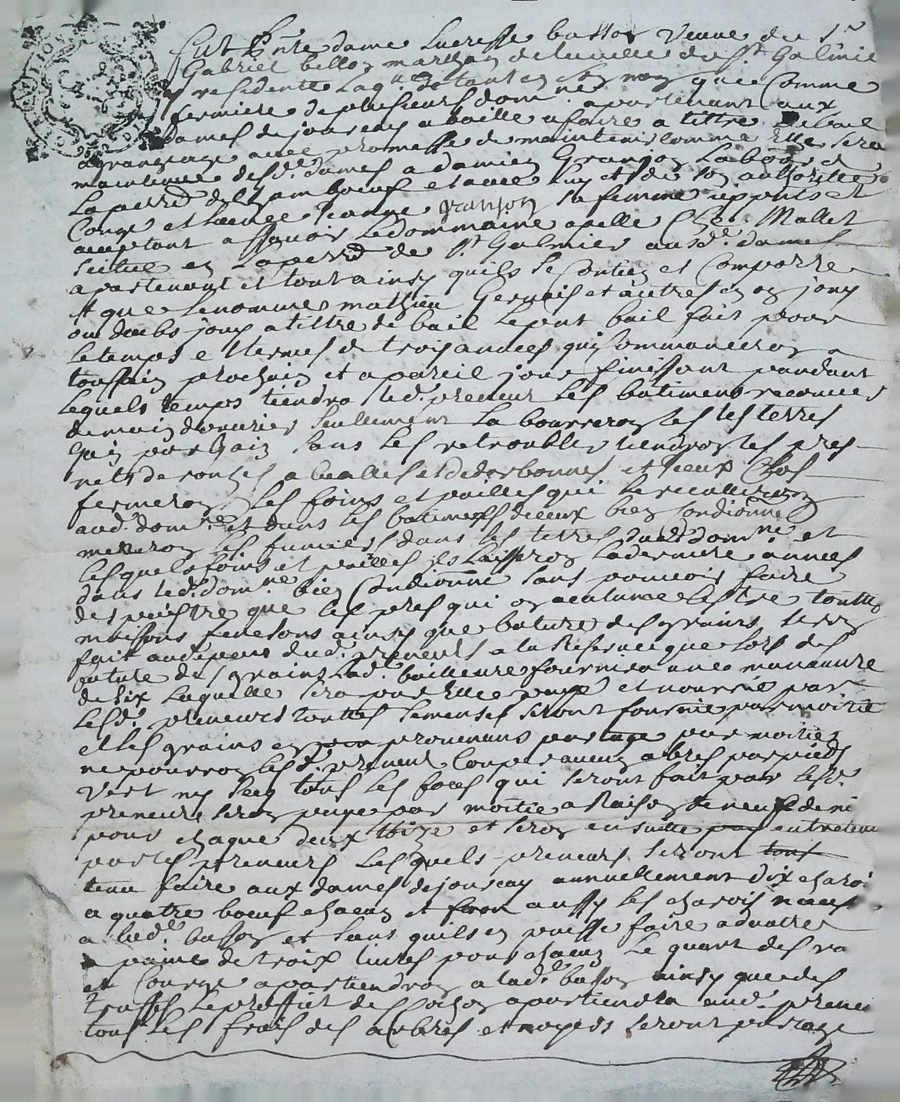 fut p̃nte dame Lucresse basson veuve du Sr
Gabriel bellon marchan de la ville de St Galmier
residente laq.lle de tout en son nom que comme
fermiere de plusieurs dom.nes apartenant aux
Dames de jourcey a baille a faire a tittre de bail
a grangeage avec promesse de maintenir comme Elle sera
maintenue desd.s dames a damien Granjon Laboureur de
La parr.e de Chambœuf et avec luy et de son authorité
Conge et licence Jeanne granjon sa femme ijcy p.nts et
acceptant assavoir Le dommaine apelle Chez Mallet
scitue en La parr.e de St Galmier ausd. dames
apartenant et tout ainsy quils se Contien et Comporte
et que Le nomme mathieu Gervais et autres en on jouy
ou deubs jouy a tittre de bail Le p.nt bail fait pour
Le temps et termes de trois annees qui Commanceron a
toussain prochain et a pareil jour finissant pandant
Lequels temps tiendra led. preneur Les batimens
de main seullement Laboureron Les terres
sans Les retroubler tiendron Les pres
nets de ronses et de darbonnes et iceux Clos
fermeron Les foins et pailles qui se recuilleron
aud. dom.ne et dans Les batimens diceux bien Condionne
meneron Les fumiers dans Les terres dud. dom.ne et
Lesquels foins et pailles ils Laisseron La derniere annees
dans led. dom.ne bien Condionne sans pouvoir faire
despaistre que Les pres qui on acoutume Lestre touttes
moissons fenesons ainsy que bature des grains seron
fait aux depens dud. preneurs a la Reserve que Lors de
bature des grains Lad. bailleure fournira une manœuvre
de six Laquelle sera par Elle paye et nourrie par
Lesd. preneurs touttes semenses seront fournie par moitié
et Les grains en provenans partage par moitie
ne pourron Lesd. preneur Couper aucuns abres par pieds
vert ny secs tous Les foces qui seront fait par Lesd.
preneurs seron paye par moitie a Raison de neuf deni
pour chaque deux thoize et seron en suitte entretenu
par les preneurs Lesquels preneurs seront
tenu faire aux dames de jourcey annuellement dix charoi
a quatre bœufs chacun et aussy Les charois
a lad. basson et sans quils en puisse faire a dautres
a paine de trois livres pour chacun Le quart des ra
et Courge apartiendron a lad. basson ainsy que des
truffes Le proffict de Cochon apartiendra aud. preneu
tous Les frais des arbres et noyers seront partage